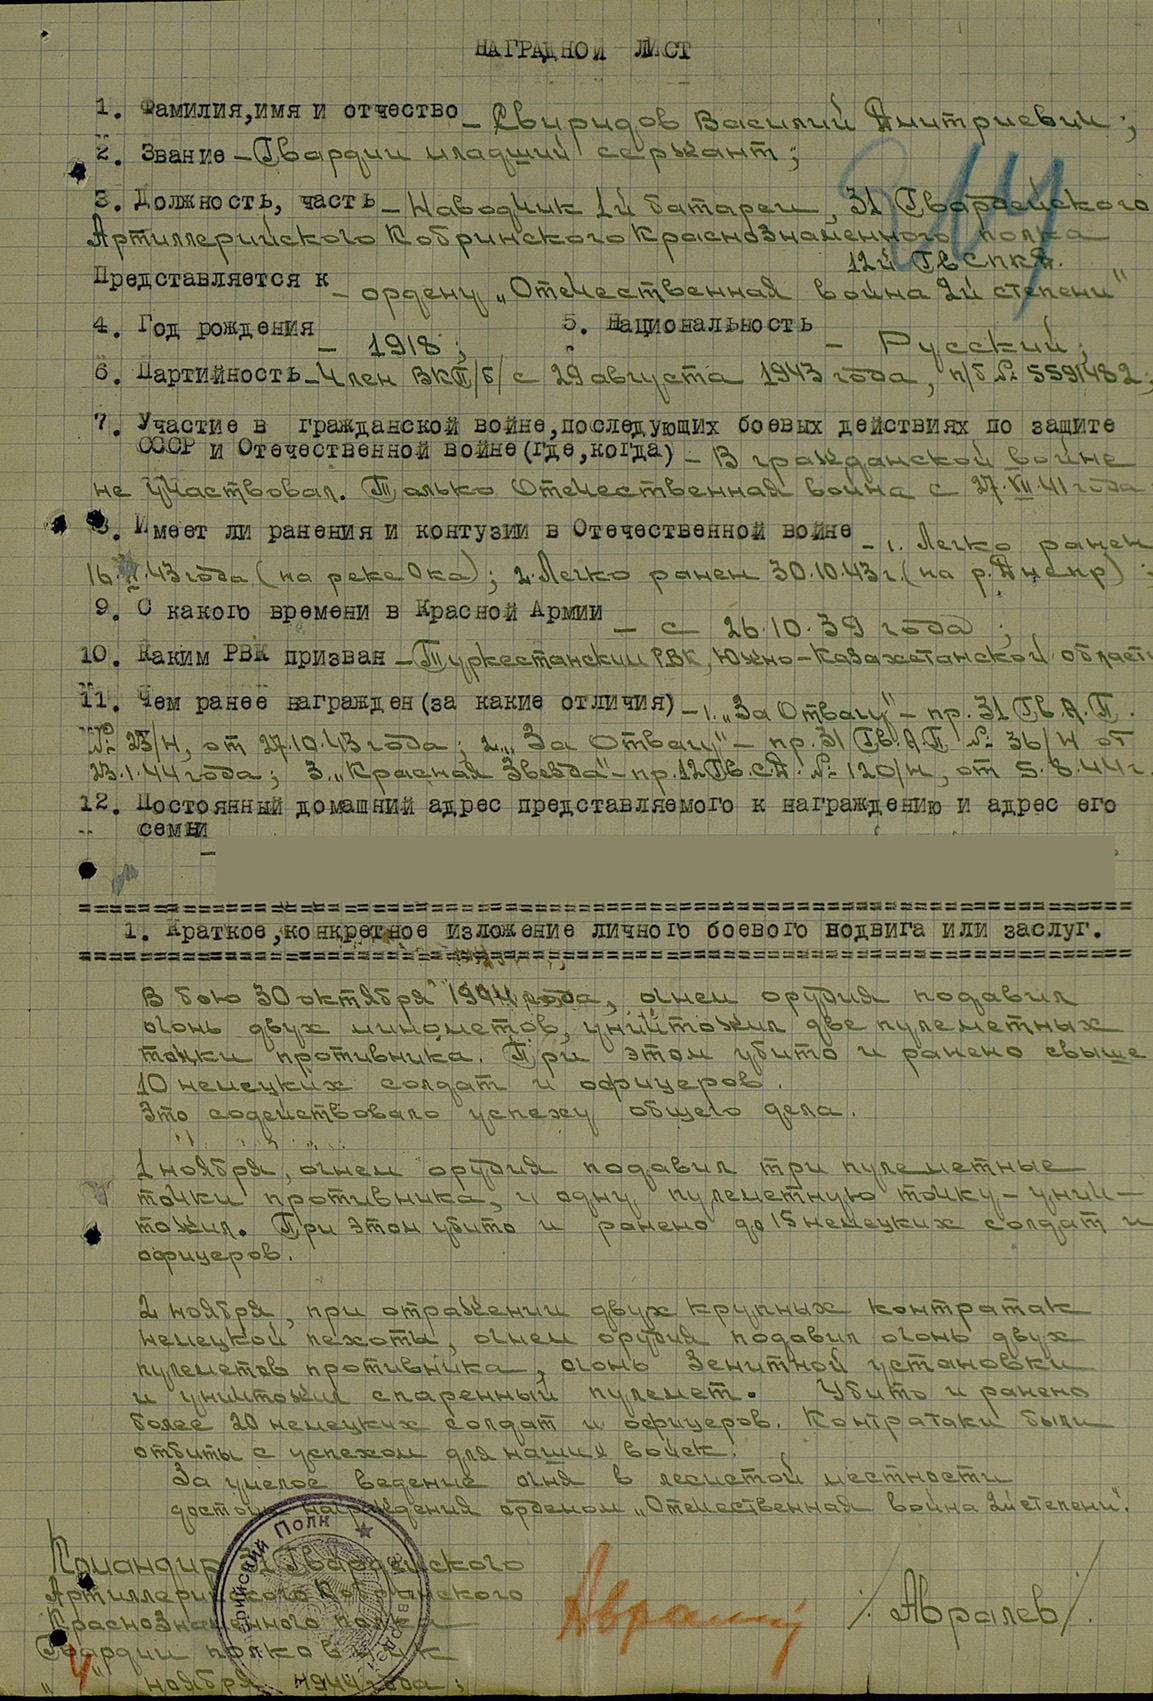 НАГРАДНОЙ ЛИСТ
1. Фамилия,имя и отчество - Свиридов Василий Дмитриевич;
2. Звание - Гвардии младший сержант;
3. Должность, часть - Наводчик 1й батареи, 31 Гвардейского
Артиллерийского Кобринского Краснознаменного полка
12й Гв СПКД.
Представляется к - ордену „Отечественная война 2й степени"
4. Год рождения - 1918; 5. Национальность - Русский;
6. Партийность - Член ВКП/б/ с 29 августа 1943 года, п/б № 5591482;
7. Участие в гражданской войне,последующих боевых действиях по защите
СССР и Отечественной войне(где,когда) - В гражданской войне
не участвовал. Только Отечественная война с 27.VII.41 года
8. Имеет ли ранения и контузии в Отечественной войне - 1. Легко ранен
16. .43 года (на реке Ока); 2. Легко ранен 30.10.43 г. (на р. Днепр);
9. С какого времени в Красной Армии - с 26.10.39 года;
10. Каким РВК призван - Туркестанским РВК, Южно-Казахстанской области
11. Чем ранее награжден(за какие отличия) - 1. „За Отвагу" - пр. 31 Гв.А.П.
№ 23/н, от 27.10.43 года; 2. „За Отвагу" - пр. 31 Гв.А.П. № 36/н от
23.1.44 года; 3. „Красная Звезда" - пр. 12 Гв.С.Д. № 120/н, от 5.8.44 г.
12. Постоянный домашний адрес представляемого к награждению и адрес его
семьи -
1. Краткое,конкретное изложение личного боевого подвига или заслуг.
В бою 30 октября 1944 года, огнем орудия подавил
огонь двух минометов, уничтожил две пулеметных
точки противника. При этом убито и ранено свыше
10 немецких солдат и офицеров.
Это содействовало успеху общего дела.
1 ноября, огнем орудия подавил три пулеметные
точки противника, и одну пулеметную точку - унич-
тожил. При этом убито и ранено до 15 немецких солдат и
офицеров.
2 ноября, при отражении двух крупных контратак
немецкой пехоты, огнем орудия подавил огонь двух
пулеметов противника, огонь зенитной установки
и уничтожил спаренный пулемет. Убито и ранено
более 20 немецких солдат и офицеров. Контратаки были
отбиты с успехом для наших войск.
За умелое ведение огня в лесистой местности
достоин награждения орденом „Отечественная война 2й степени".
Командир 31 Гвардейского
Артиллерийского Кобринского
Краснознаменного полка
Гвардии полковник /Авралев/
„4" ноября 1944 года;